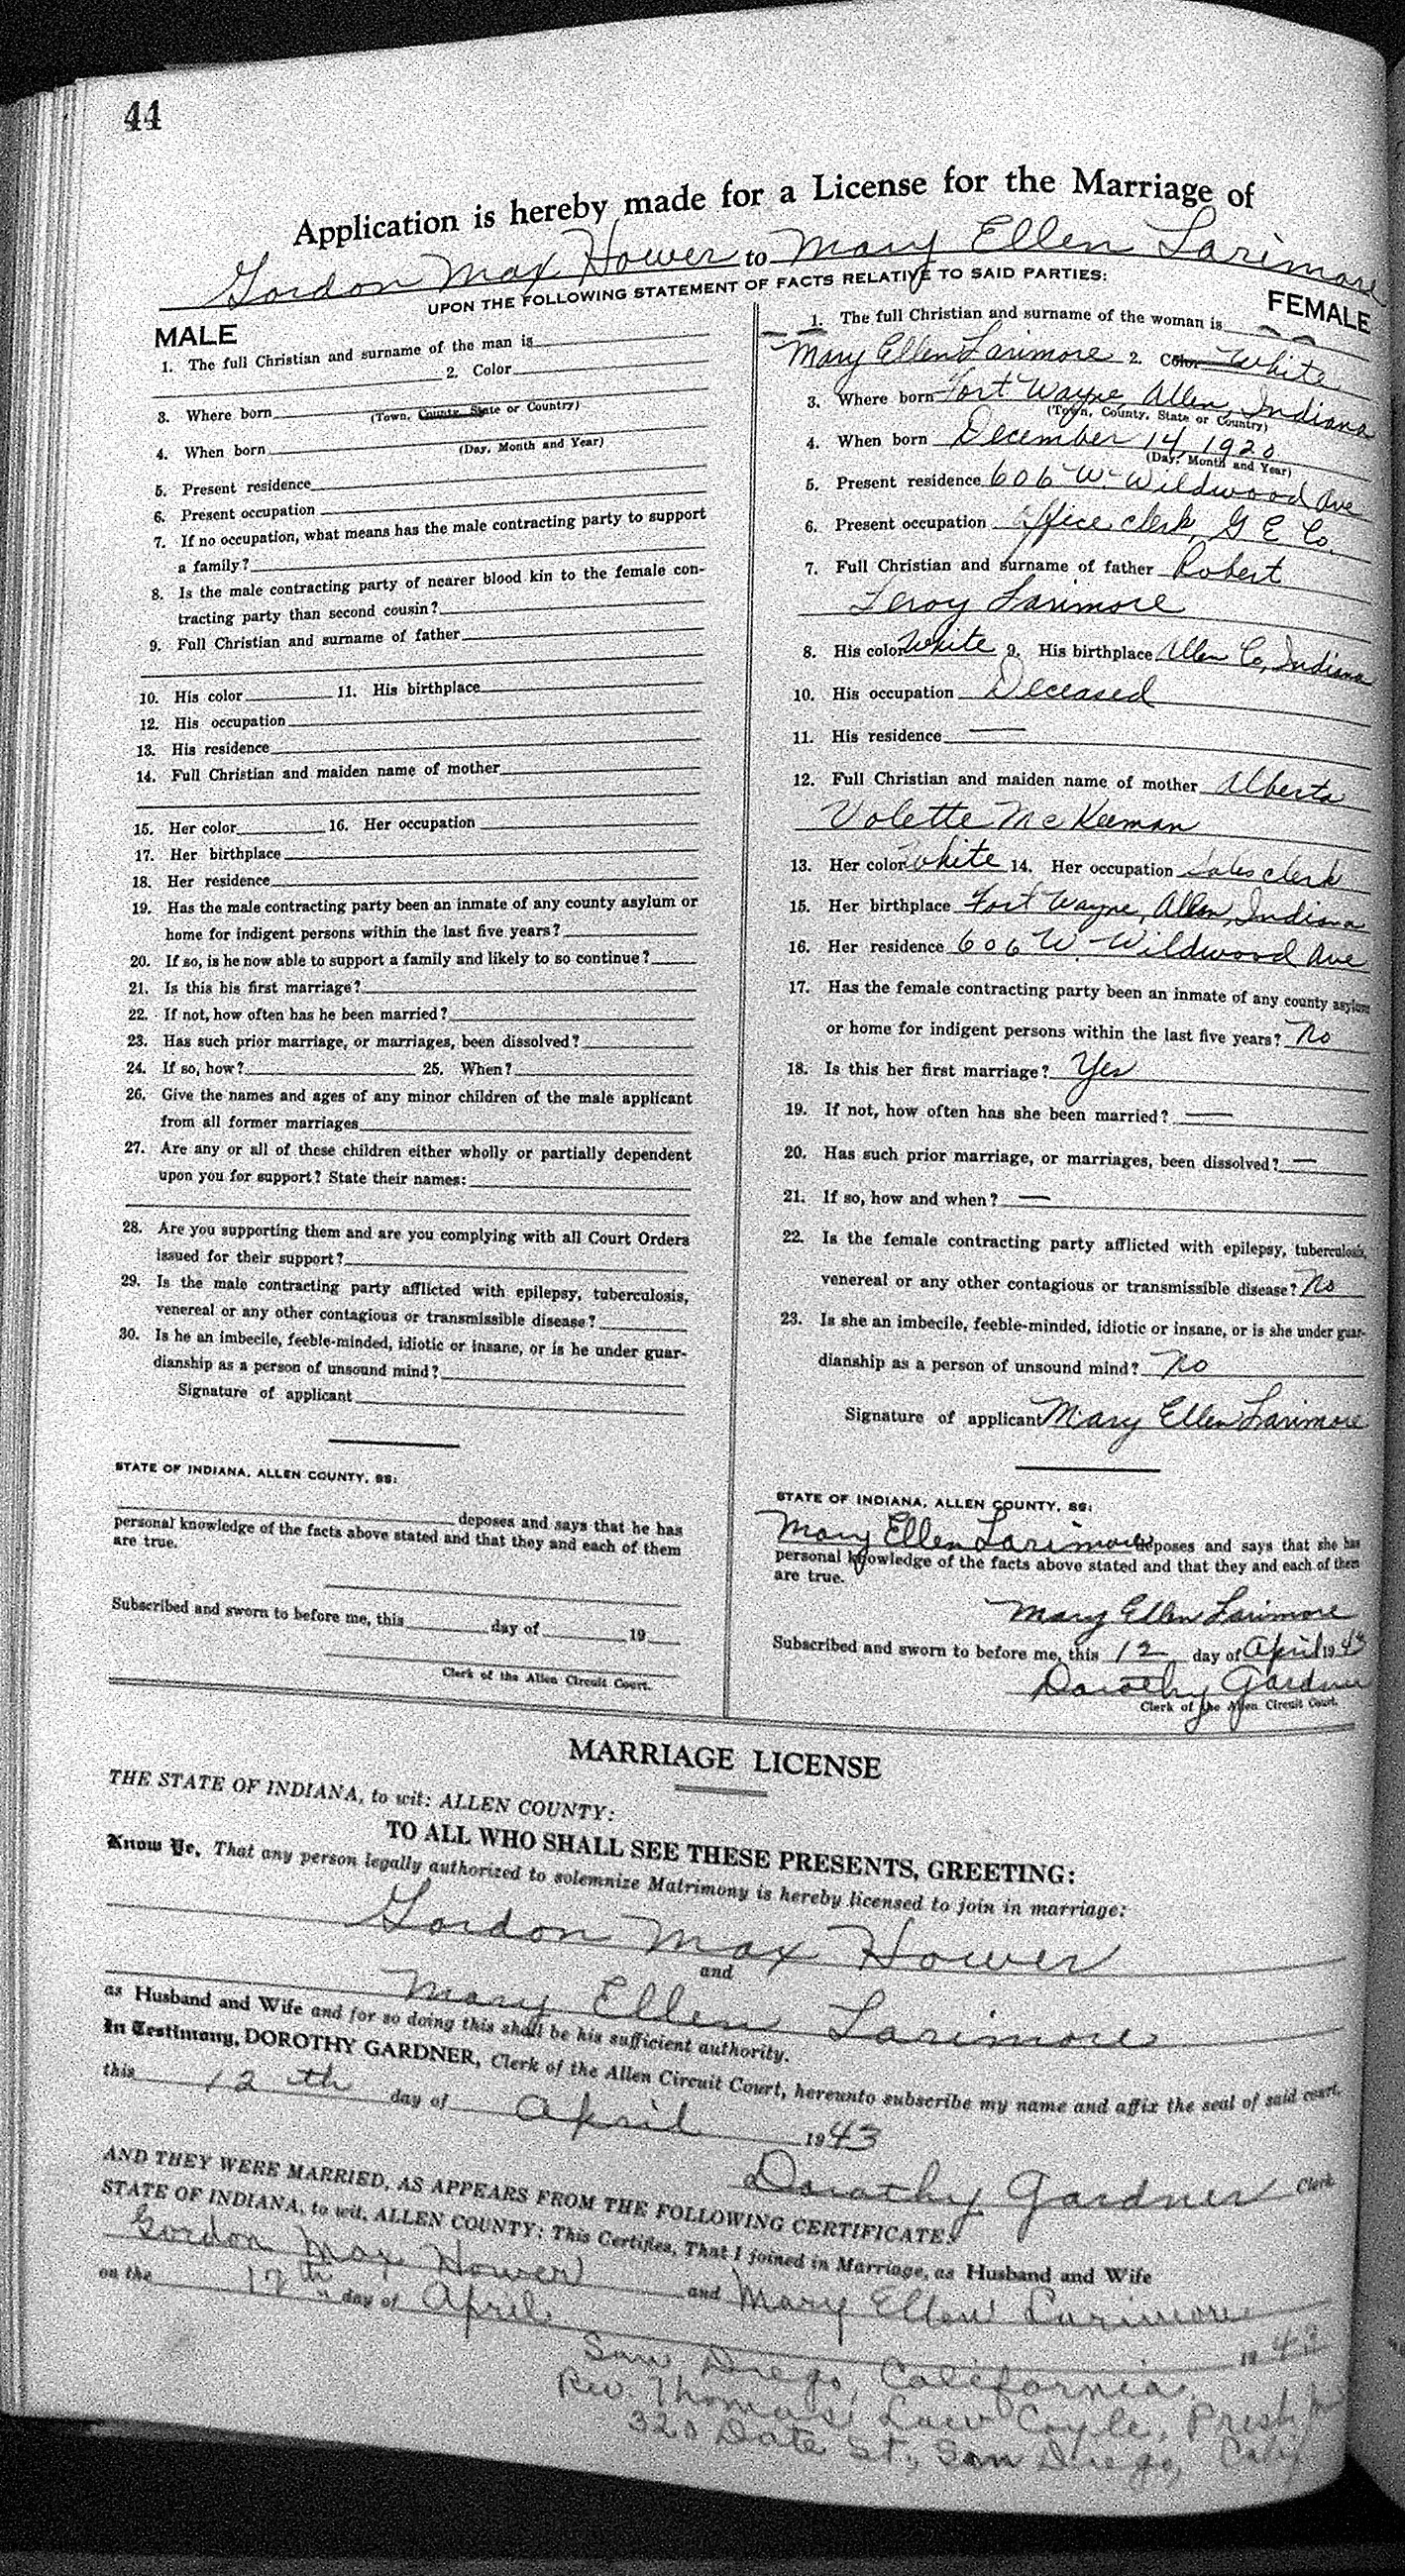 44
Application is hereby made for a License for the Marriage of
Gordon Max Hower to Mary Ellen Larimore
UPON THE FOLLOWING STATEMENT OF FACTS RELATIVE TO SAID PARTIES:
MALE
1. The full Christian and surname of the man is
2. Color
3. Where born
(Town, County, State or Country)
4. When born
(Day, Month and Year)
5. Present residence
6. Present occupation
7. If no occupation, what means has the male contracting party to support
a family?
8. Is the male contracting party of nearer blood kin to the female con-
tracting party than second cousin?
9. Full Christian and surname of father
10. His color 11. His birthplace
12. His occupation
13. His residence
14. Full Christian and maiden name of mother
15. Her color 16. Her occupation
17. Her birthplace
18. Her residence
19. Has the male contracting party been an inmate of any county asylum or
home for indigent persons within the last five years?
20. If so, is he now able to support a family and likely to so continue?
21. Is this his first marriage?
22. If not, how often has he been married?
23. Has such prior marriage, or marriages, been dissolved?
24. If so, how? 25. When?
26. Give the names and ages of any minor children of the male applicant
from all former marriages
27. Are any or all of these children either wholly or partially dependent
upon you for support? State their names:
28. Are you supporting them and are you complying with all Court Orders
issued for their support?
29. Is the male contracting party afflicted with epilepsy, tuberculosis,
venereal or any other contagious or transmissible disease?
30. Is he an imbecile, feeble-minded, idiotic or insane, or is he under guar-
dianship as a person of unsound mind?
Signature of applicant
STATE OF INDIANA, ALLEN COUNTY, SS:
deposes and says that he has
personal knowledge of the facts above stated and that they and each of them
are true.
Subscribed and sworn to before me, this day of 19
Clerk of the Allen Circuit Court.
FEMALE
1. The full Christian and surname of the woman is
Mary Ellen Larimore 2. Color White
3. Where born Fort Wayne, Allen, Indiana
(Town, County, State or Country)
4. When born December 14, 1920
(Day, Month and Year)
5. Present residence 606 W. Wildwood Ave
6. Present occupation Office clerk, G E Co.
7. Full Christian and surname of father Robert
Leroy Larimore
8. His color White 9. His birthplace Allen Co, Indiana
10. His occupation Deceased
11. His residence —
12. Full Christian and maiden name of mother Alberta
Volette McKeeman
13. Her color White 14. Her occupation Sales clerk
15. Her birthplace Fort Wayne, Allen, Indiana
16. Her residence 606 W. Wildwood Ave
17. Has the female contracting party been an inmate of any county asylum
or home for indigent persons within the last five years? No
18. Is this her first marriage? Yes
19. If not, how often has she been married? —
20. Has such prior marriage, or marriages, been dissolved? —
21. If so, how and when? —
22. Is the female contracting party afflicted with epilepsy, tuberculosis,
venereal or any other contagious or transmissible disease? No
23. Is she an imbecile, feeble-minded, idiotic or insane, or is she under guar-
dianship as a person of unsound mind? No
Signature of applicant Mary Ellen Larimore
STATE OF INDIANA, ALLEN COUNTY, SS:
Mary Ellen Larimore deposes and says that she has
personal knowledge of the facts above stated and that they and each of them
are true.
Mary Ellen Larimore
Subscribed and sworn to before me, this 12 day of April 1943
Dorothy Gardner
Clerk of the Allen Circuit Court.
MARRIAGE LICENSE
THE STATE OF INDIANA, to wit: ALLEN COUNTY:
TO ALL WHO SHALL SEE THESE PRESENTS, GREETING:
Know Ye, That any person legally authorized to solemnize Matrimony is hereby licensed to join in marriage:
Gordon Max Hower
and
Mary Ellen Larimore
as Husband and Wife and for so doing this shall be his sufficient authority.
In Testimony, DOROTHY GARDNER, Clerk of the Allen Circuit Court, hereunto subscribe my name and affix the seal of said court,
this 12th day of April 1943
Dorothy Gardner Clerk
AND THEY WERE MARRIED, AS APPEARS FROM THE FOLLOWING CERTIFICATE:
STATE OF INDIANA, to wit, ALLEN COUNTY: This Certifies, That I joined in Marriage, as Husband and Wife
Gordon Max Hower and Mary Ellen Larimore
on the 17th day of April 19
San Diego, California
Rev. Thomas Law Coyle, Presb
320 Date St., San Diego, Calif